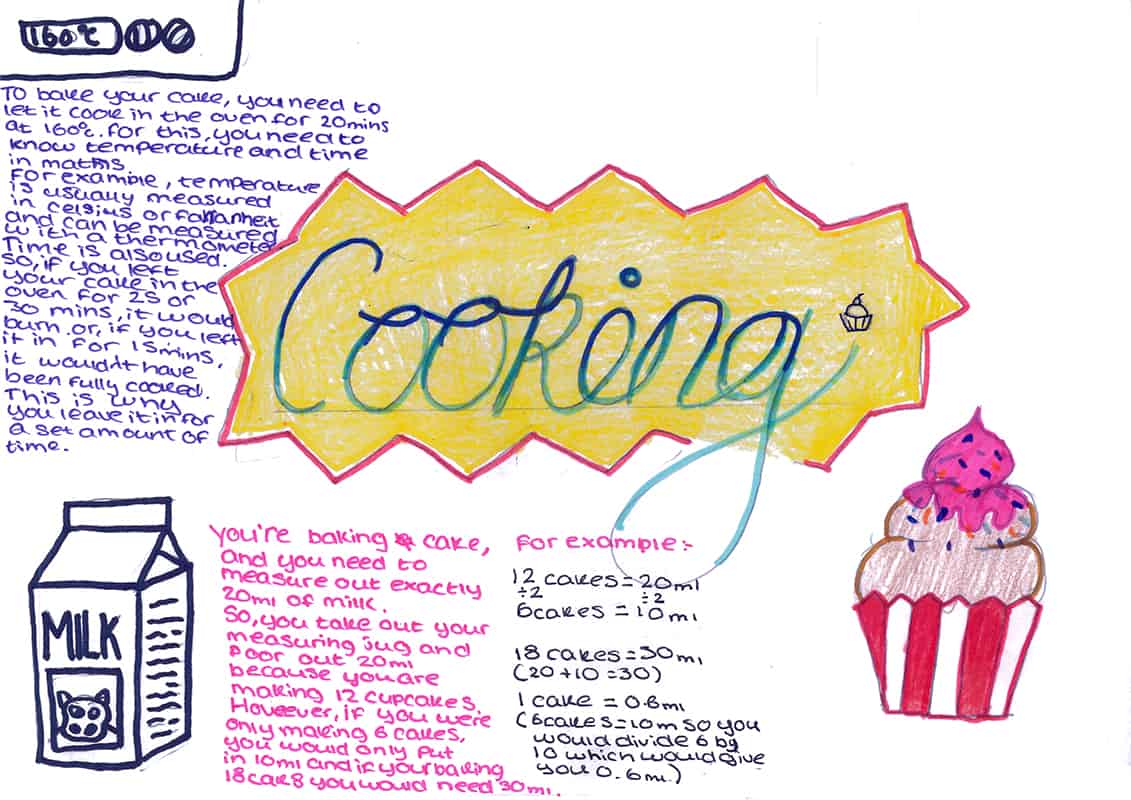 160°c
To bake your cake, you need to
let it cook in the oven for 20mins
at 160°c. for this, you need to
know temperature and time
in maths
For example, temperature
is usually measured
in celsius or
and can be measured
with a thermometer
Time is also used.
So, if you left
your cake in the
oven for 25 or
30 mins, it would
burn. or, if you left
it in for 15mins,
it wouldn't have
been fully cooked.
This is why
you leave it in for
a set amount of
time.
Cooking
MILK
You're baking cake,
and you need to
measure out exactly
20ml of milk.
So, you take out your
measuring jug and
poor out 20ml
because you are
making 12 cupcakes.
However, if you were
only making 6 cakes,
you would only put
in 10ml and if your baking
18 cakes you would need 30ml.
For example:-
12 cakes = 20ml
÷2 ÷2
6cakes = 10ml
18 cakes = 30ml
(20+10=30)
1 cake = 0.6ml
(6cakes=10m so you
would divide 6 by
10 which would give
you 0.6ml.)